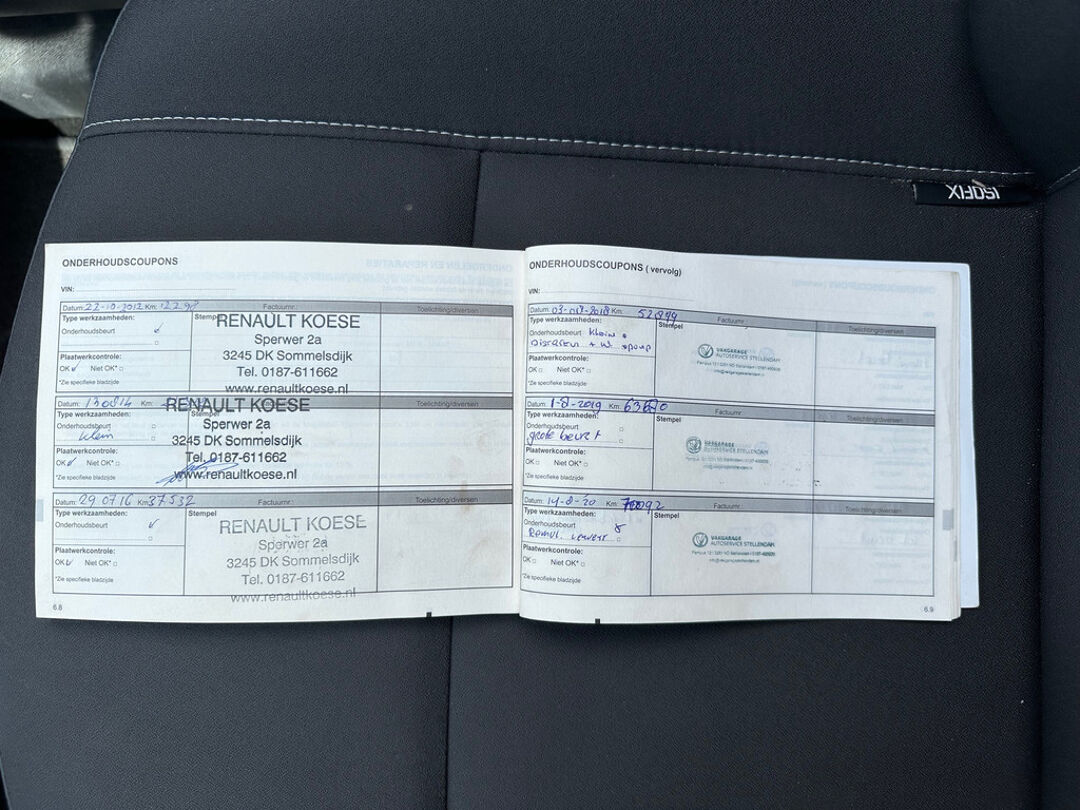 ISOFIX
ONDERHOUDSCOUPONS
VIN:
Datum: 22-10-2012 Km: Factuurnr.: Toelichting/diversen
Type werkzaamheden: Stempel
Onderhoudsbeurt
RENAULT KOESE
Sperwer 2a
3245 DK Sommelsdijk
Tel. 0187-611662
www.renaultkoese.nl
Plaatwerkcontrole:
OK Niet OK*
*Zie specifieke bladzijde
Datum: 130814 Km: Toelichting/diversen
Type werkzaamheden: Stempel
Onderhoudsbeurt
klein
RENAULT KOESE
Sperwer 2a
3245 DK Sommelsdijk
Tel. 0187-611662
www.renaultkoese.nl
Plaatwerkcontrole:
OK Niet OK*
*Zie specifieke bladzijde
Datum: 29 07 16 Km 37532 Factuurnr.: Toelichting/diversen
Type werkzaamheden: Stempel
Onderhoudsbeurt
RENAULT KOESE
Sperwer 2a
3245 DK Sommelsdijk
Tel. 0187-611662
www.renaultkoese.nl
Plaatwerkcontrole:
OK Niet OK*
*Zie specifieke bladzijde
6.8
ONDERHOUDSCOUPONS ( vervolg)
VIN:
Datum: Km: Factuurnr.: Toelichting/diversen
Type werkzaamheden: Stempel
Onderhoudsbeurt klein
VAKGARAGE
AUTOSERVICE STELLENDAM
Plaatwerkcontrole:
OK Niet OK*
*Zie specifieke bladzijde
Datum: 1-8-2019 Km: Factuurnr.: Toelichting/diversen
Type werkzaamheden: Stempel
Onderhoudsbeurt
grote beurt
VAKGARAGE
AUTOSERVICE STELLENDAM
Plaatwerkcontrole:
OK Niet OK*
*Zie specifieke bladzijde
Datum: 14-8-20 Km: Factuurnr.: Toelichting/diversen
Type werkzaamheden: Stempel
Onderhoudsbeurt
VAKGARAGE
AUTOSERVICE STELLENDAM
Plaatwerkcontrole:
OK Niet OK*
*Zie specifieke bladzijde
6.9